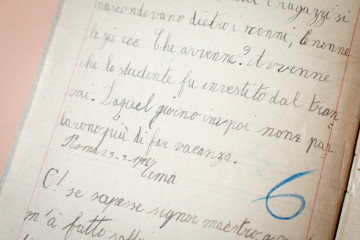 i ragazzi si
nascondevano dietro i nonni, le nonne
le zie ecc. Che avvenne? Avvenne
che lo studente fu investito dal tran
vai. Da quel giorno in poi non par
larono più di far vacanza.
Roma 23-3-
Tema
6
C! se sapesse signor maestro
m'à fatto